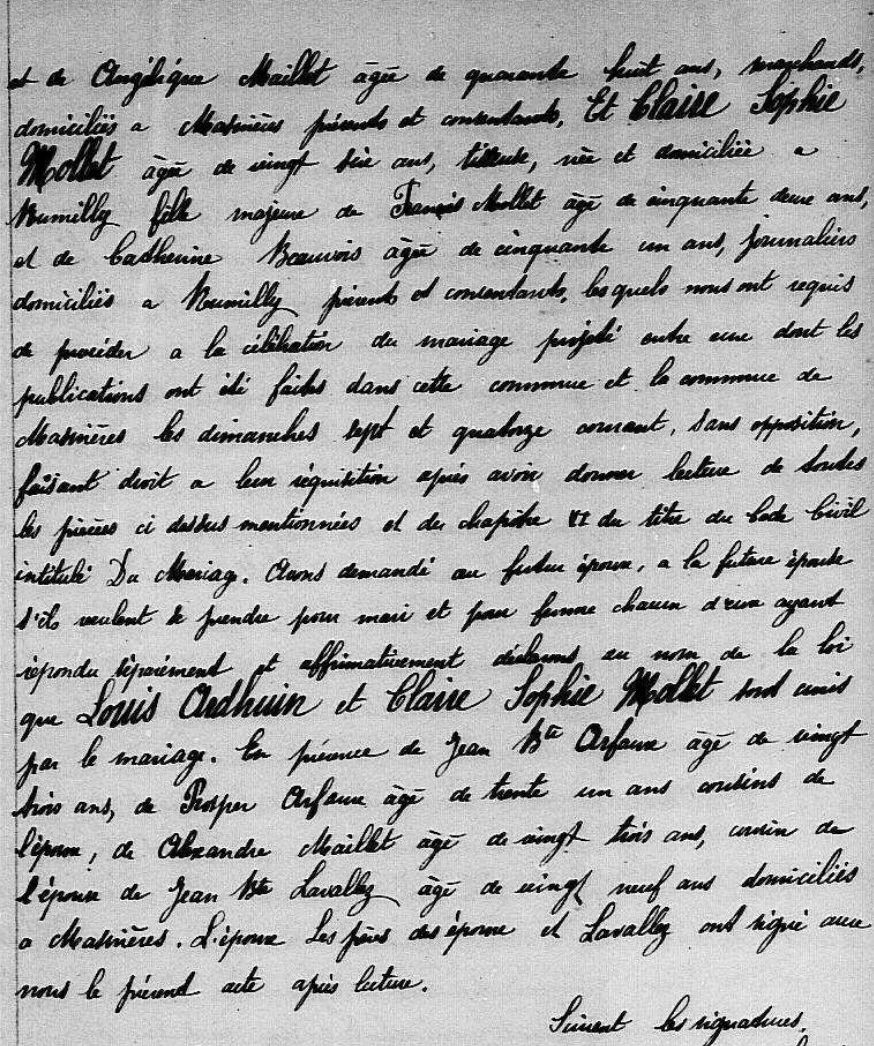 et de Angélique Maillet âgée de quarante huit ans, marchands,
domiciliés a Masnières présents et consentants, Et Claire Sophie
Mollet âgée de vingt six ans, tilleuse, née et domiciliée a
Rumilly fille majeure de François Mollet âgé de cinquante deux ans,
et de Catherine Beauvois âgée de cinquante un ans, journaliers
domiciliés a Rumilly présents et consentants, lesquels nous ont requis
de procéder a la célébration du mariage projeté entre eux dont les
publications ont été faites dans cette commune et la commune de
Masnières les dimanches sept et quatorze courant, sans opposition,
faisant droit a leur réquisition après avoir donner lecture de toutes
les pièces ci dessus mentionnées et du chapitre VI du titre du Code Civil
intitulé Du Mariage. Avons demandé au futur époux, a la future épouse
s'ils veulent se prendre pour mari et pour femme chacun d'eux ayant
répondu séparément et affirmativement déclarons au nom de la loi
que Louis Ardhuin et Claire Sophie Mollet sont unis
par le mariage. En présence de Jean Bte Arfaux âgé de vingt
trois ans, de Prosper Arfaux âgé de trente un ans cousins de
l'époux, de Alexandre Maillet âgé de vingt trois ans, cousin de
l'époux de Jean Bte Lavallez âgé de vingt neuf ans domiciliés
a Masnières. L'époux Les pères des époux et Lavallez ont signé avec
nous le présent acte après lecture.
Suivent les signatures.